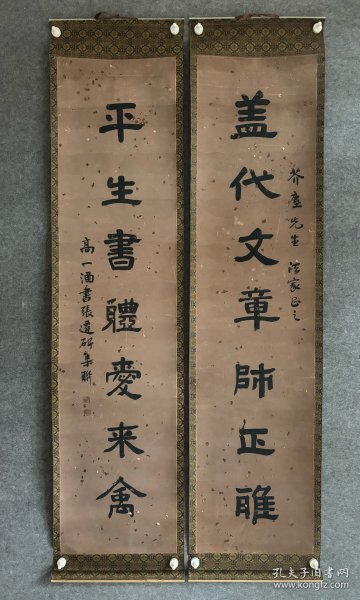 盖代文章師正雅
芥塵先生法家正之
平生書體愛来禽
高一涵書張遷碑集聯
孔夫子旧书网
www.kongfz.com